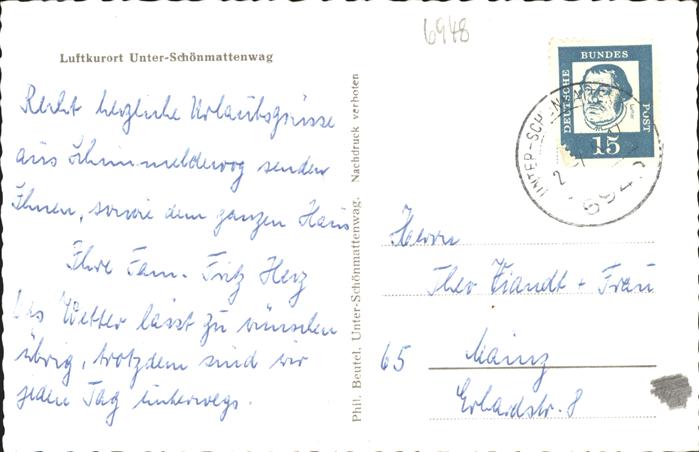 6948
Luftkurort Unter-Schönmattenwag
Recht herzliche Urlaubsgrüsse
aus Schimmeldewog senden
Ihnen, sowie dem ganzen Haus
Ihre Fam. Fritz Herz
Das Wetter lässt zu wünschen
übrig, trotzdem sind wir
jeden Tag unterwegs.
Phil. Beutel, Unter-Schönmattenwag. Nachdruck verboten
DEUTSCHE BUNDES POST
15
UNTER-SCHÖN
694
Herrn
Theo Wiandt + Frau
65 Mainz
Erhardstr. 8